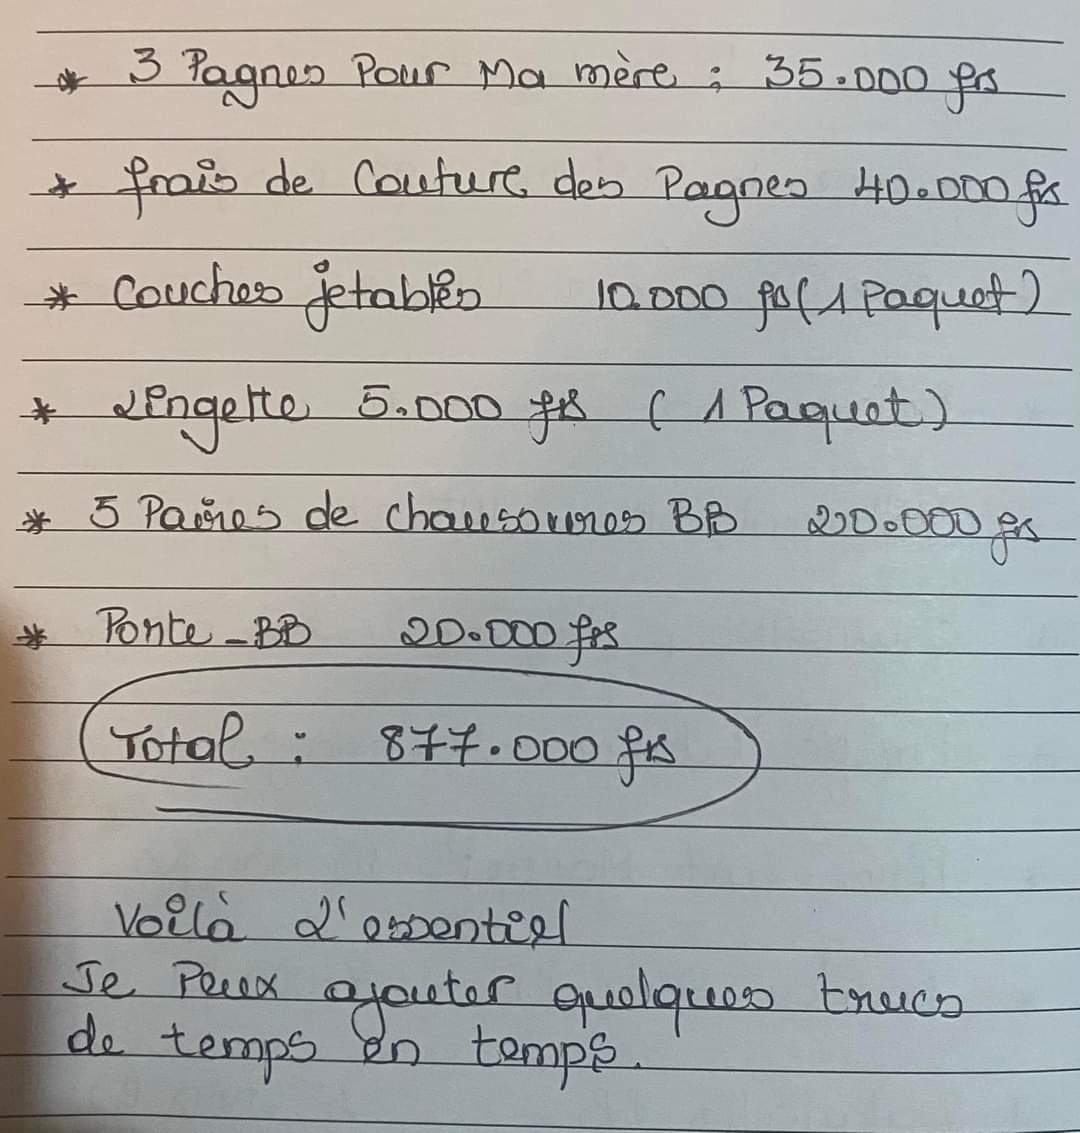 * 3 Pagnes Pour Ma mère : 35.000 frs
* frais de Couture des Pagnes 40.000 frs
* Couches jetables 10.000 frs (1 Paquet)
* Lingette 5.000 frs (1 Paquet)
* 5 Paires de chaussures BB 20.000 frs
* Porte-BB 20.000 frs
Total : 877.000 frs
Voilà l'essentiel
Je Peux ajouter quelques trucs
de temps en temps.